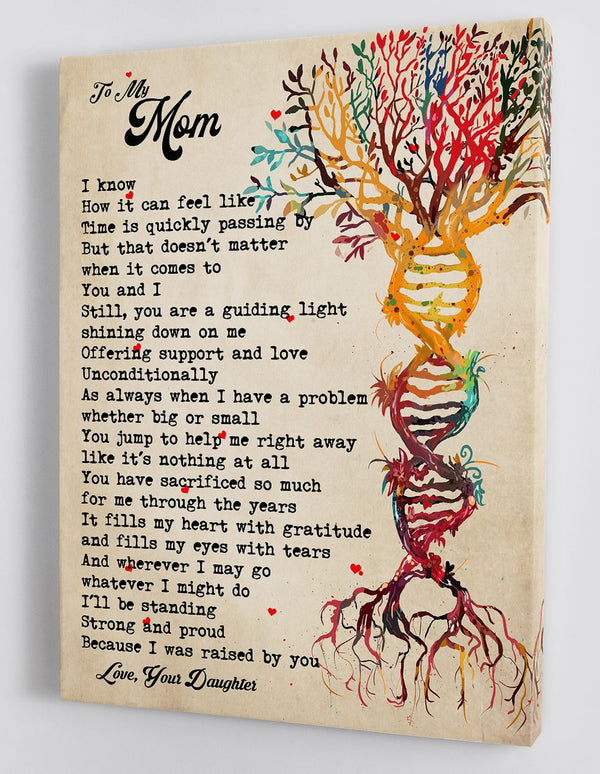 To My
Mom
I know
How it can feel like
Time is quickly passing by
But that doesn't matter
when it comes to
You and I
Still, you are a guiding light
shining down on me
Offering support and love
Unconditionally
As always when I have a problem
whether big or small
You jump to help me right away
like it's nothing at all
You have sacrificed so much
for me through the years
It fills my heart with gratitude
and fills my eyes with tears
And wherever I may go
whatever I might do
I'll be standing
Strong and proud
Because I was raised by you
Love, Your Daughter